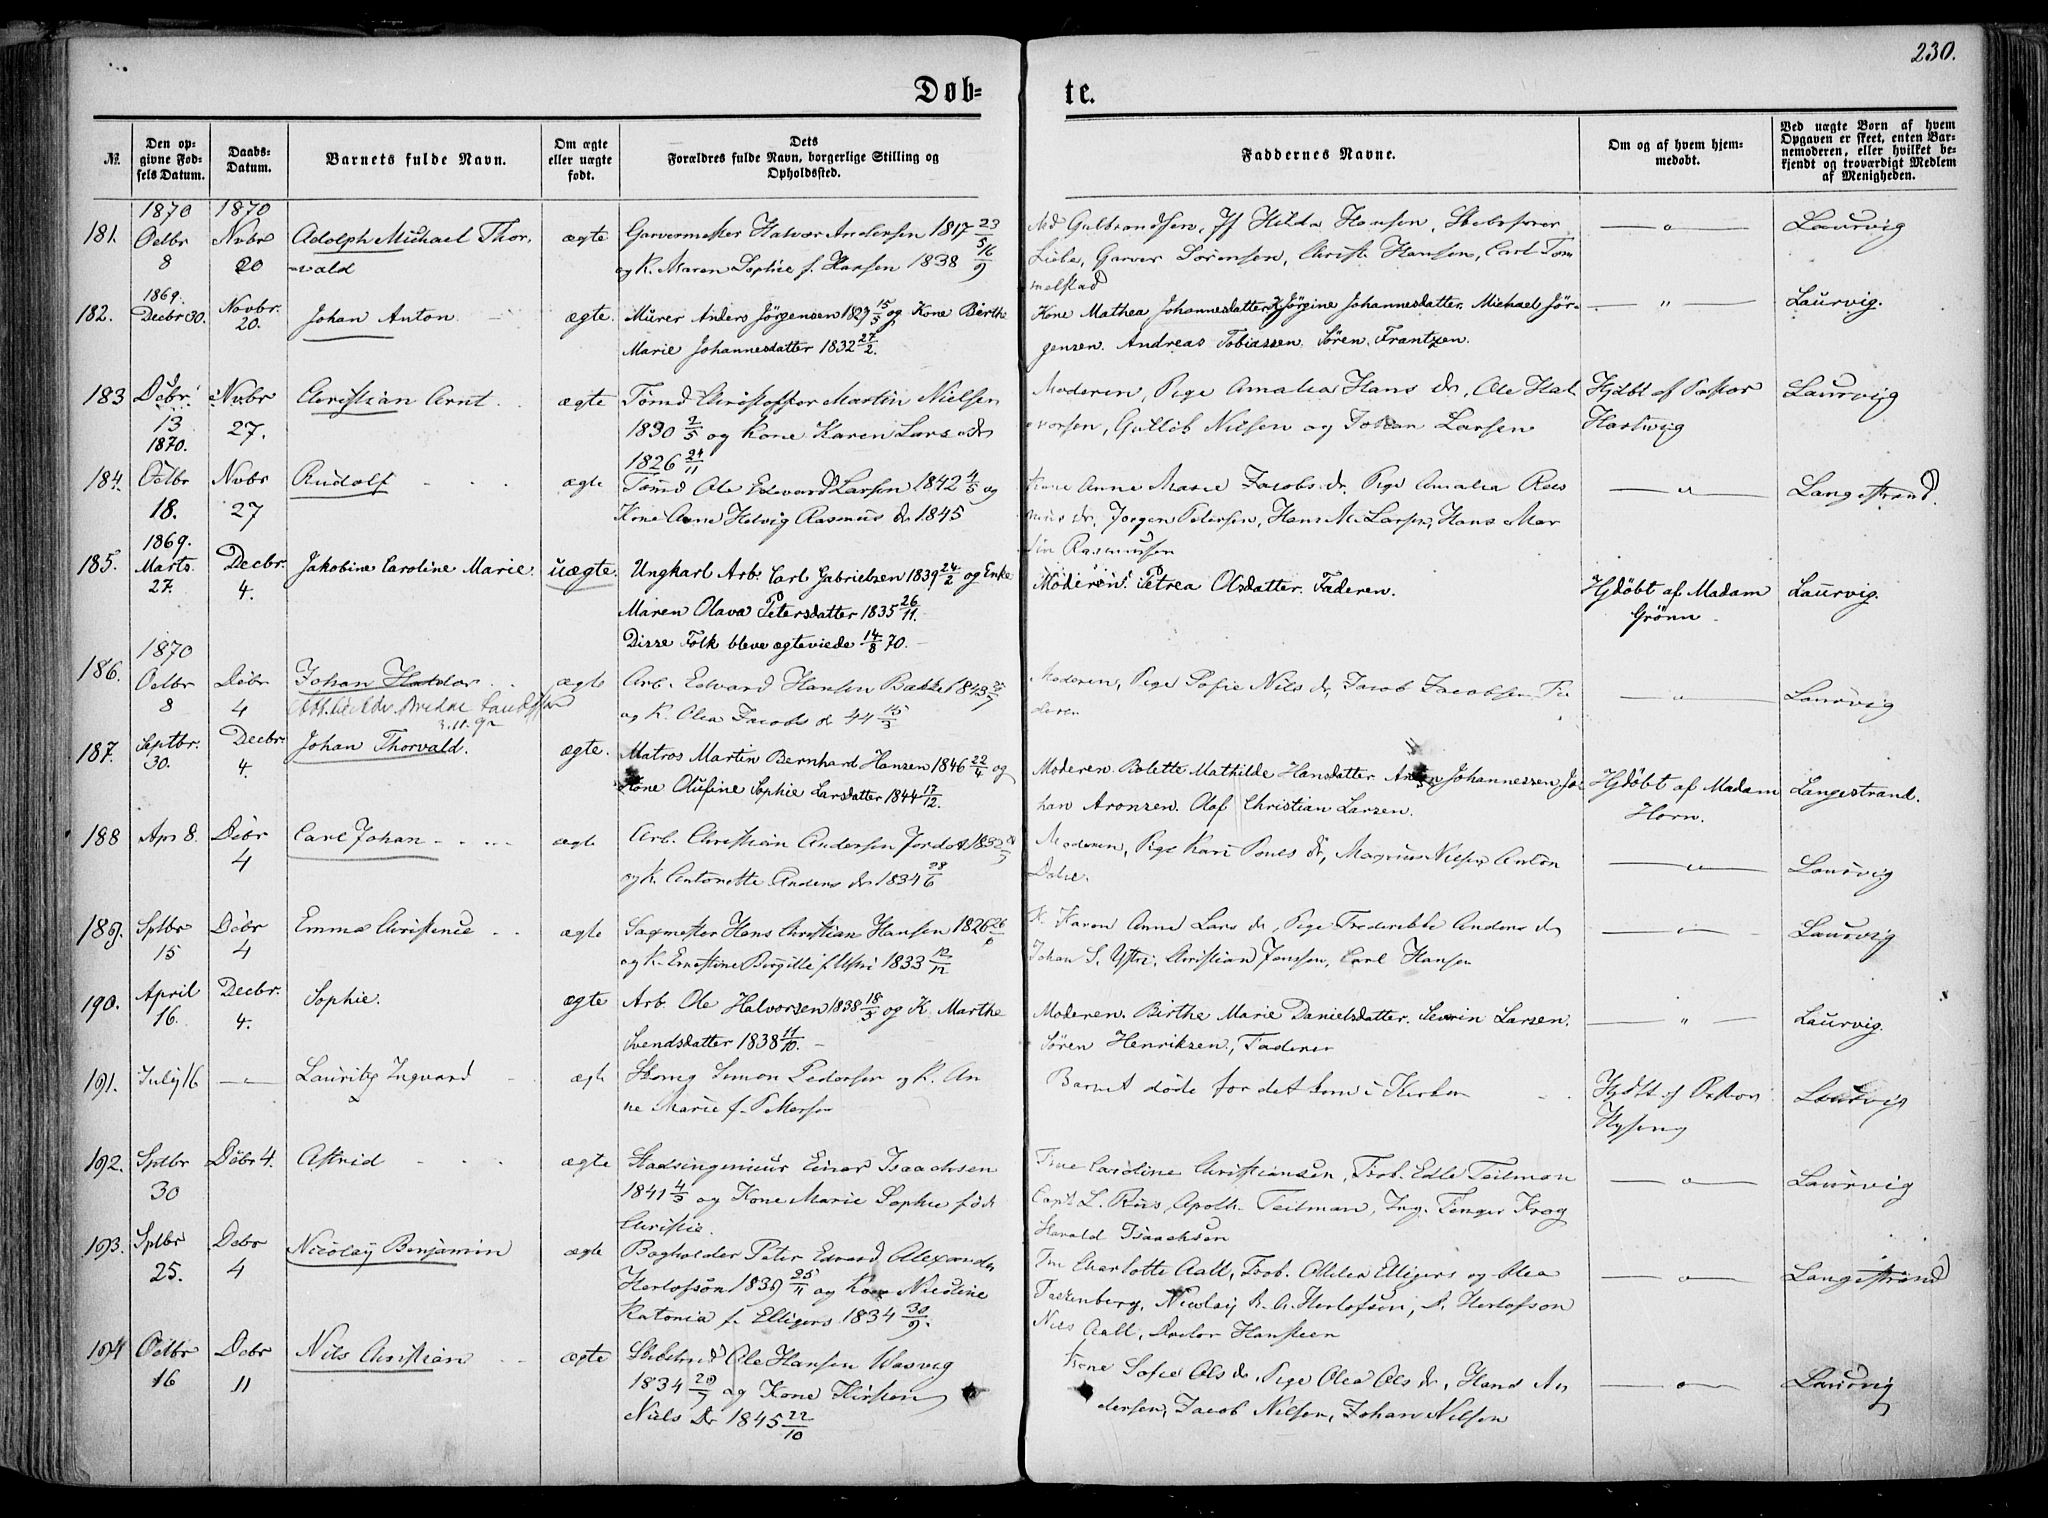 230.
Døb-
te.
№.
Den op-
givne Fød-
sels Datum.
Daabs-
Datum.
Barnets fulde Navn.
Om ægte
eller uægte
født.
Dets
Forældres fulde Navn, borgerlige Stilling og
Opholdssted.
Faddernes Navne.
Om og af hvem hjem-
medøbt.
Ved uægte Børn af hvem
Opgaven er skeet, enten Bar-
nemoderen, eller hvilket be-
kjendt og troværdigt Medlem
af Menigheden.
1870 1870
181. Octbr Nvbr Adolph Michael Thor- ægte Garvermester Halvor Andersen 1817 23/5
8 20 -vald og K. Maren Sophie f. Hansen 1838 16/9
Md Gulbrandsen, Jf Hilda Hansen, Skibsfører Laurvig
Liebe, Garver Sörensen, Christ. Hansen, Carl Tom
melstad
1869.
182. Decbr 30. Novbr. Johan Anton. ægte. Murer Anders Jørgensen 1829 15/5 og Kone Birthe
20. Marie Johannesdatter 1832 27/2.
Kone Mathea Johannesdatter. Jørgine Johannesdatter. Michael Jør- — " — Laurvig.
gensen. Andreas Tobiassen. Sören Frantzen.
183 Debr Nvbr Christian Arnt ægte Tømd Christoffer Martin Nielsen
13 27. 1830 2/5 og Kone Karen Lars dr
1870. 1826 24/11
Moderen, Pige Amalia Hans dr, Ole Hal Hjdbt af Pastor Laurvig
vorsen, Gullik Nilsen og Johan Larsen Hartwig
184. Octbr Nvbr Rudolf ægte Tømd Ole Edvard Larsen 1842 4/5 og
18. 27 Kone Anne Helvig Rasmus dr 1845
Kone Anne Marie Jacobs dr, Pige Amalia Ras Langestrand.
mus dr, Jörgen Petersen, Hans M. Larsen, Hans Mar
tin Rasmussen
1869.
185. Marts. Decbr. Jakobine Caroline Marie. uægte. Ungkarl Arb. Carl Gabrielsen 1839 24/2 og Enke
27. 4. Maren Olava Petersdatter 1835 26/11.
Disse Folk bleve ægteviede 14/8 70.
Moderen. Petrea Olsdatter. Faderen. Hjdøbt af Madam Laurvig.
Grönn.
1870
186. Octbr Dcbr Johan Haldor ægte Arb. Edvard Hansen Bakke 1843
8 4 og K. Olea Jacobs d 44 15/3
3.11.92
Moderen, Pige Sofie Nils dr, Jacob Jacobsen Fa Laurvig
deren
187. Septbr. Decbr. Johan Thorvald. ægte. Matros Martin Bernhard Hansen 1846 22/4 og
30. 4. Kone Olufine Sophie Larsdatter 1844 17/12.
Moderen. Bolette Mathilde Hansdatter. Anton Johannessen. Jo- Hjdøbt af Madam Langestrand.
han Aronsen. Olaf Christian Larsen. Horn.
188 Apr 8. Dcbr Carl Johan ægte Arb. Christian Andersen Jordet 1832
4 og K. Antonette Anders dr 1834 28/6
Moderen, Pige Kari Pouls dr, Magnus Nilsen Anton Laurvig
Dolve.
189. Sptbr Dcbr Emma Christence ægte Sagmester Hans Christian Hansen 1826
15 4 og K. Ernestine Birgitte f. Ustri 1833 12/12
K. Karen Anne Lars dr, Pige Frederikke Anders dr Laurvig
Johan S. Ystri, Christian Jonssen, Carl Hansen
190. April Decbr. Sophie. ægte Arb. Ole Halvorsen 1838 18/5 og K. Marthe
16. 4. Svendsdatter 1838 11/10.
Moderen. Birthe Marie Danielsdatter. Severin Larsen. — " — Laurvig.
Sören Henriksen. Faderen
191. July 16 Lauritz Ingvard ægte Skomg Simon Pedersen og K. An
ne Marie f. Pettersen
Barnet døde før det kom i Kirken Hjdbt af Laurvig
192. Sptbr Dcbr 4. Astrid ægte Stadsingenieur Einar Isaachsen
30 1841 4/3 og Kone Marie Sophie född
Christie.
Frue Caroline Christiansen, Frøk. Edle Teilman Laurvig
Capt. L. Riis, Apoth. Teilman, Ing. Fenger Krog
Harald Isaachsen
193. Sptbr Dcbr Nicolay Benjamin ægte Bogholder Peter Edvard Alexander
25. 4 Herlofson 1839 25/11 og Kone Nicoline
Katonia f. Elligers 1834 30/9.
Fru Charlotte Aall, Frøk. Elligers og Olea Langestrand
Falkenberg, Nicolay B. A. Herlofsen, A. Herlofson
Nils Aall, Doctor Hansteen
194 Octbr Dcbr Nils Christian ægte Skibstmd Ole Hansen Wasvig
16 11 1834 20/7 og Kone Kirsten
Niels Dr 1845 22/10
Kone Sofie Ols dr, Pige Olea Ols dr, Hans An Laurvig
dersen, Jacob Nilsen, Johan Nilsen